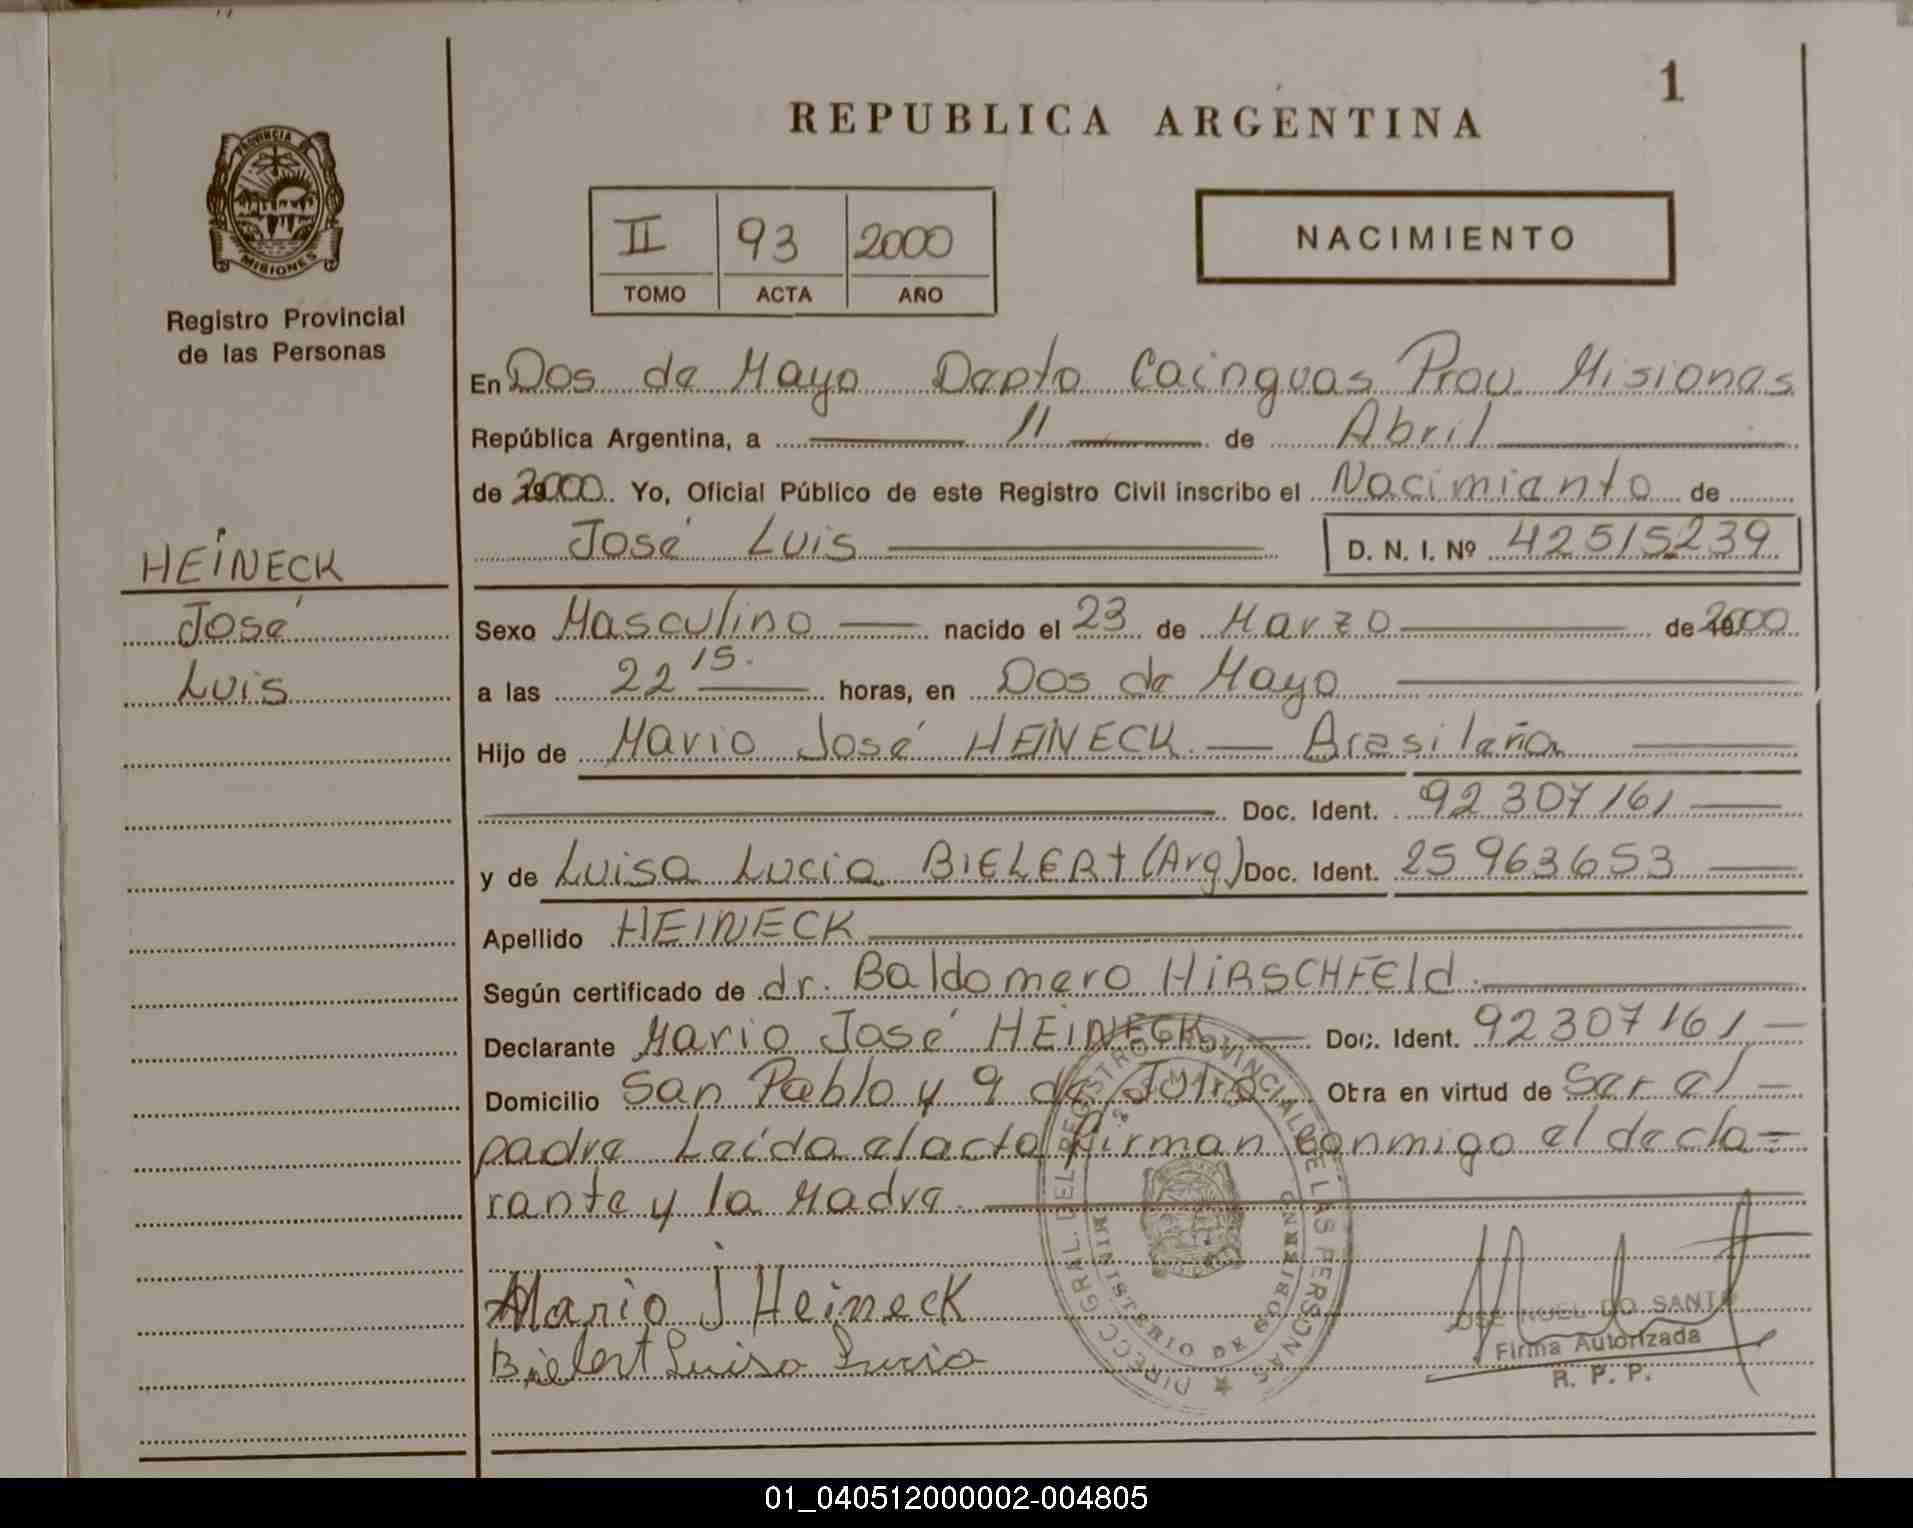 1
REPUBLICA ARGENTINA
PROVINCIA DE
MISIONES
Registro Provincial
de las Personas
II 93 2000
TOMO ACTA AÑO
NACIMIENTO
En Dos de Mayo Depto Cainguas Prov Misiones
República Argentina, a 11 de Abril
de 2000. Yo, Oficial Público de este Registro Civil inscribo el Nacimiento de
José Luis D. N. I. Nº 42515239
HEINECK
José
Luis
Sexo Masculino nacido el 23 de Marzo de 2000
a las 22 15. horas, en Dos de Mayo
Hijo de Mario José HEINECK Brasileña
Doc. Ident. 92307161
y de Luisa Lucia BIELERT (Arg) Doc. Ident. 25963653
Apellido HEINECK
Según certificado de dr. Baldomero HIRSCHFELd.
Declarante Mario José HEINECK Doc. Ident. 92307161
Domicilio San Pablo y 9 de Julio Obra en virtud de Ser el
padre Leída el acta firman conmigo el decla=
rante y la Madre.
Mario J Heineck
Bielert Luisa Lucia
DIRECC GRAL. DEL REGISTRO PROVINCIAL DE LAS PERSONAS
MINISTERIO DE GOBIERNO
Firma Autorizada
R. P. P.
01_040512000002-004805